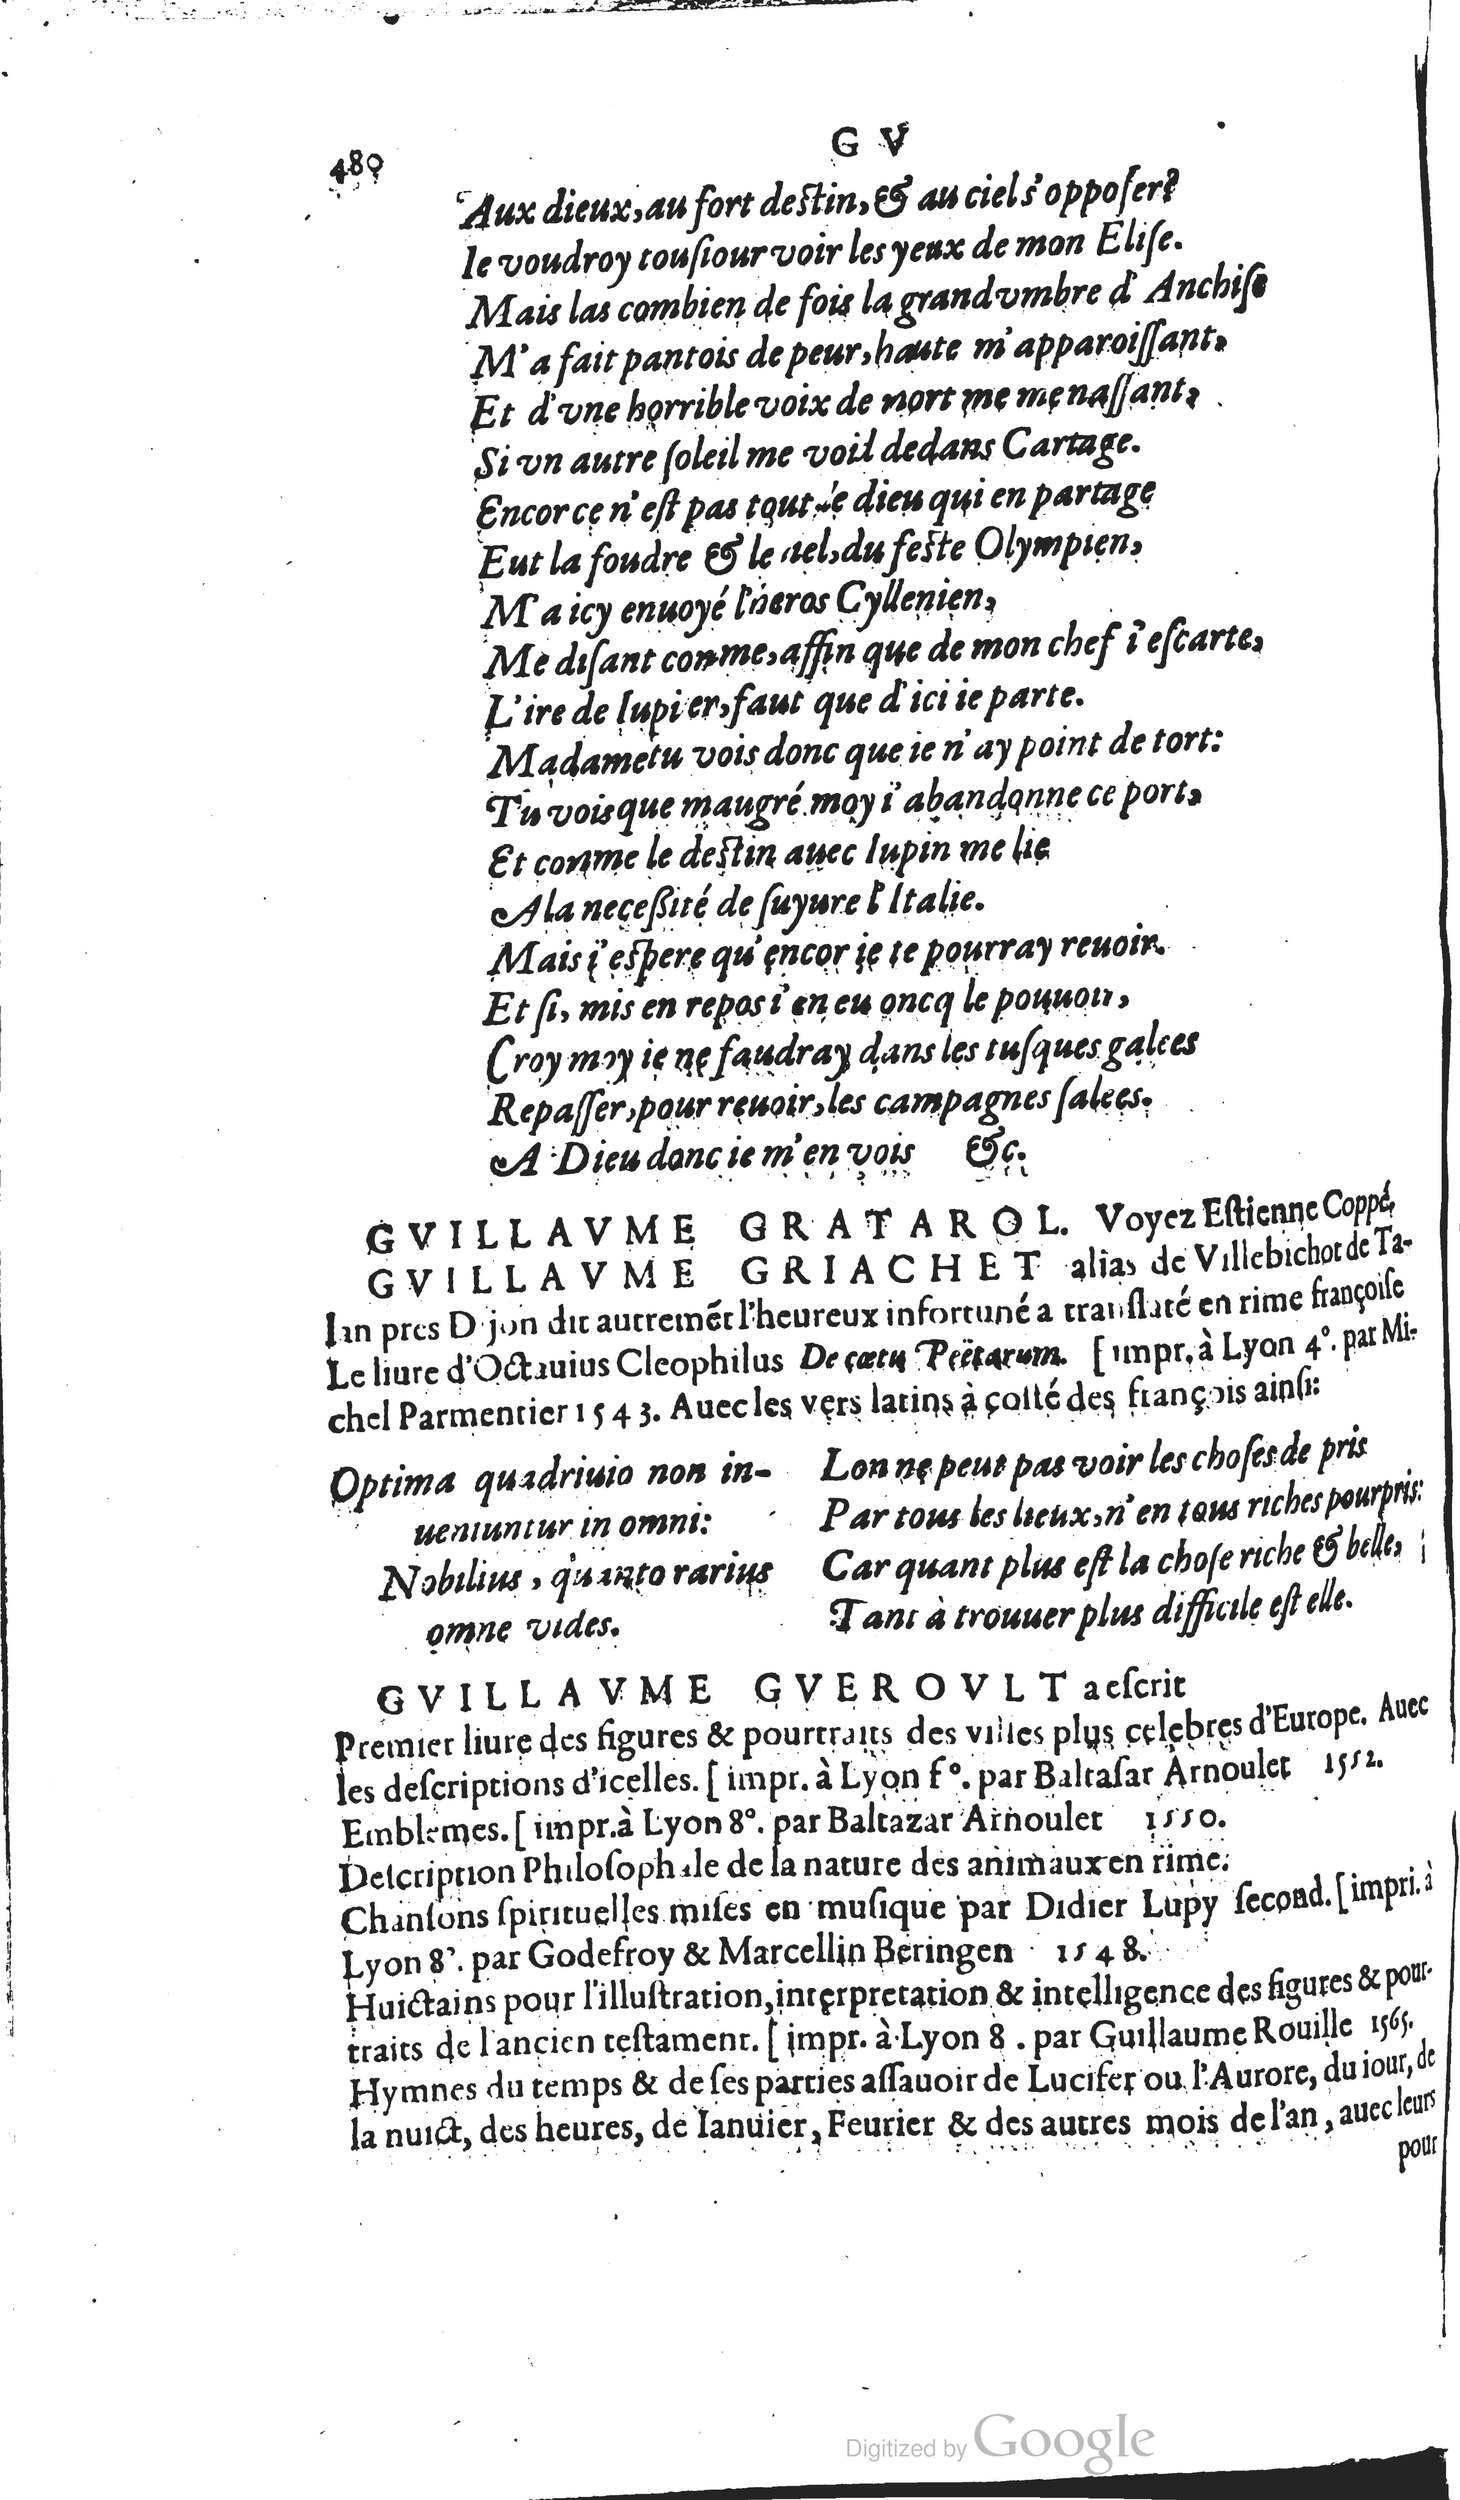 480
G V
Aux dieux, au fort destin, & au ciel s'opposer?
Ie voudroy tousiour voir les yeux de mon Elise.
Mais las combien de fois la grand vmbre d'Anchise
M'a fait pantois de peur, haute m'apparoissant,
Et d'vne horrible voix de mort me menassant,
Si vn autre soleil me voit dedans Cartage.
Encor ce n'est pas tout le dieu qui en partage
Eut la foudre & le ciel, du feste Olympien,
M'a icy enuoyé l'heros Cyllenien,
Me disant comme, affin que de mon chef i'escarte,
L'ire de Iupiter, faut que d'ici ie parte.
Madame tu vois donc que ie n'ay point de tort:
Tu vois que maugré moy i'abandonne ce port,
Et comme le destin auec Iupin me lie
A la necessité de suyure l'Italie.
Mais i'espere qu'encor ie te pourray reuoir.
Et si, mis en repos i'en eu oncq le pouuoir,
Croy moy ie ne faudray dans les tusques galees
Repasser, pour reuoir, les campagnes salees.
A Dieu donc ie m'en vois &c.
GVILLAVME GRATAROL. Voyez Estienne Coppé.
GVILLAVME GRIACHET alias de Villebichot de Ta-
lan pres Dijon dit autremēt l'heureux infortuné a translaté en rime françoise
Le liure d'Octauius Cleophilus De cœtu Poëtarum. [impr. à Lyon 4°. par Mi-
chel Parmentier 1543. Auec les vers latins à costé des françois ainsi:
Optima quadriuio non in-
ueniuntur in omni:
Nobilius, quanto rarius
omne vides.
Lon ne peut pas voir les choses de pris
Par tous les lieux, n'en tous riches pourpris:
Car quant plus est la chose riche & belle,
Tant à trouuer plus difficile est elle.
GVILLAVME GVEROVLT a escrit
Premier liure des figures & pourtraits des villes plus celebres d'Europe. Auec
les descriptions d'icelles. [impr. à Lyon f°. par Baltasar Arnoulet 1552.
Emblemes. [impr. à Lyon 8°. par Baltazar Arnoulet 1550.
Description Philosophale de la nature des animaux en rime.
Chansons spirituelles mises en musique par Didier Lupy second. [impri. à
Lyon 8°. par Godefroy & Marcellin Beringen 1548.
Huictains pour l'illustration, interpretation & intelligence des figures & pour-
traits de l'ancien testament. [impr. à Lyon 8. par Guillaume Rouille 1565.
Hymnes du temps & de ses parties assauoir de Lucifer ou l'Aurore, du iour, de
la nuict, des heures, de Ianuier, Feurier & des autres mois de l'an, auec leurs
pour
Digitized by Google